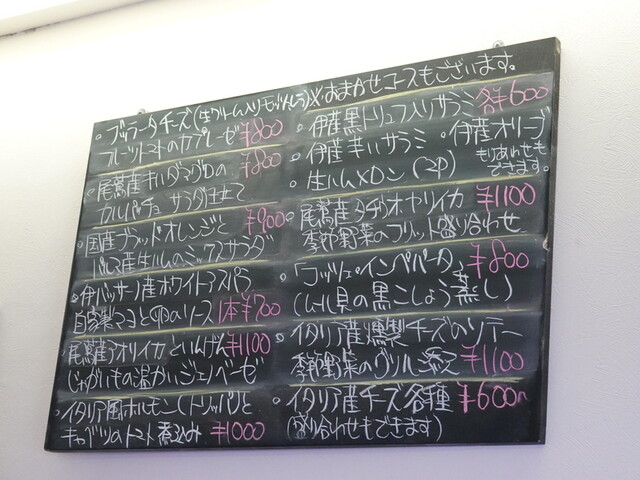 ※おまかせコースもございます。
・ブッラータチーズ(生クリーム入りモッツァレラ)
フルーツトマトのカプレーゼ ¥800
・尾鷲産キハダマグロの ¥800
カルパッチョ サラダ仕立て
・国産ブラッドオレンジと ¥900
パルマ産生ハムのミックスサラダ
・伊バッサーノ産ホワイトアスパラ
自家製マヨと卵のソース 1本¥700
・尾鷲アオリイカといんげん ¥1100
じゃがいもの温かいジェノベーゼ
・イタリア風ホルモン(トリッパ)と
キャベツのトマト煮込み ¥1000
・伊産黒トリュフ入りサラミ 各¥600
・伊産辛いサラミ ・伊産オリーブ
・生ハムメロン(2P) もりあわせも
できます。
・尾鷲産タチウオヤリイカ ¥1100
季節野菜のフリット盛り合わせ
・「コッツェ・インペパータ」 ¥800
(ムール貝の黒こしょう蒸し)
・イタリア産燻製チーズのソテー
季節野菜のグリル添え ¥1100
・イタリア産チーズ各種 ¥600〜
(盛り合わせもできます)